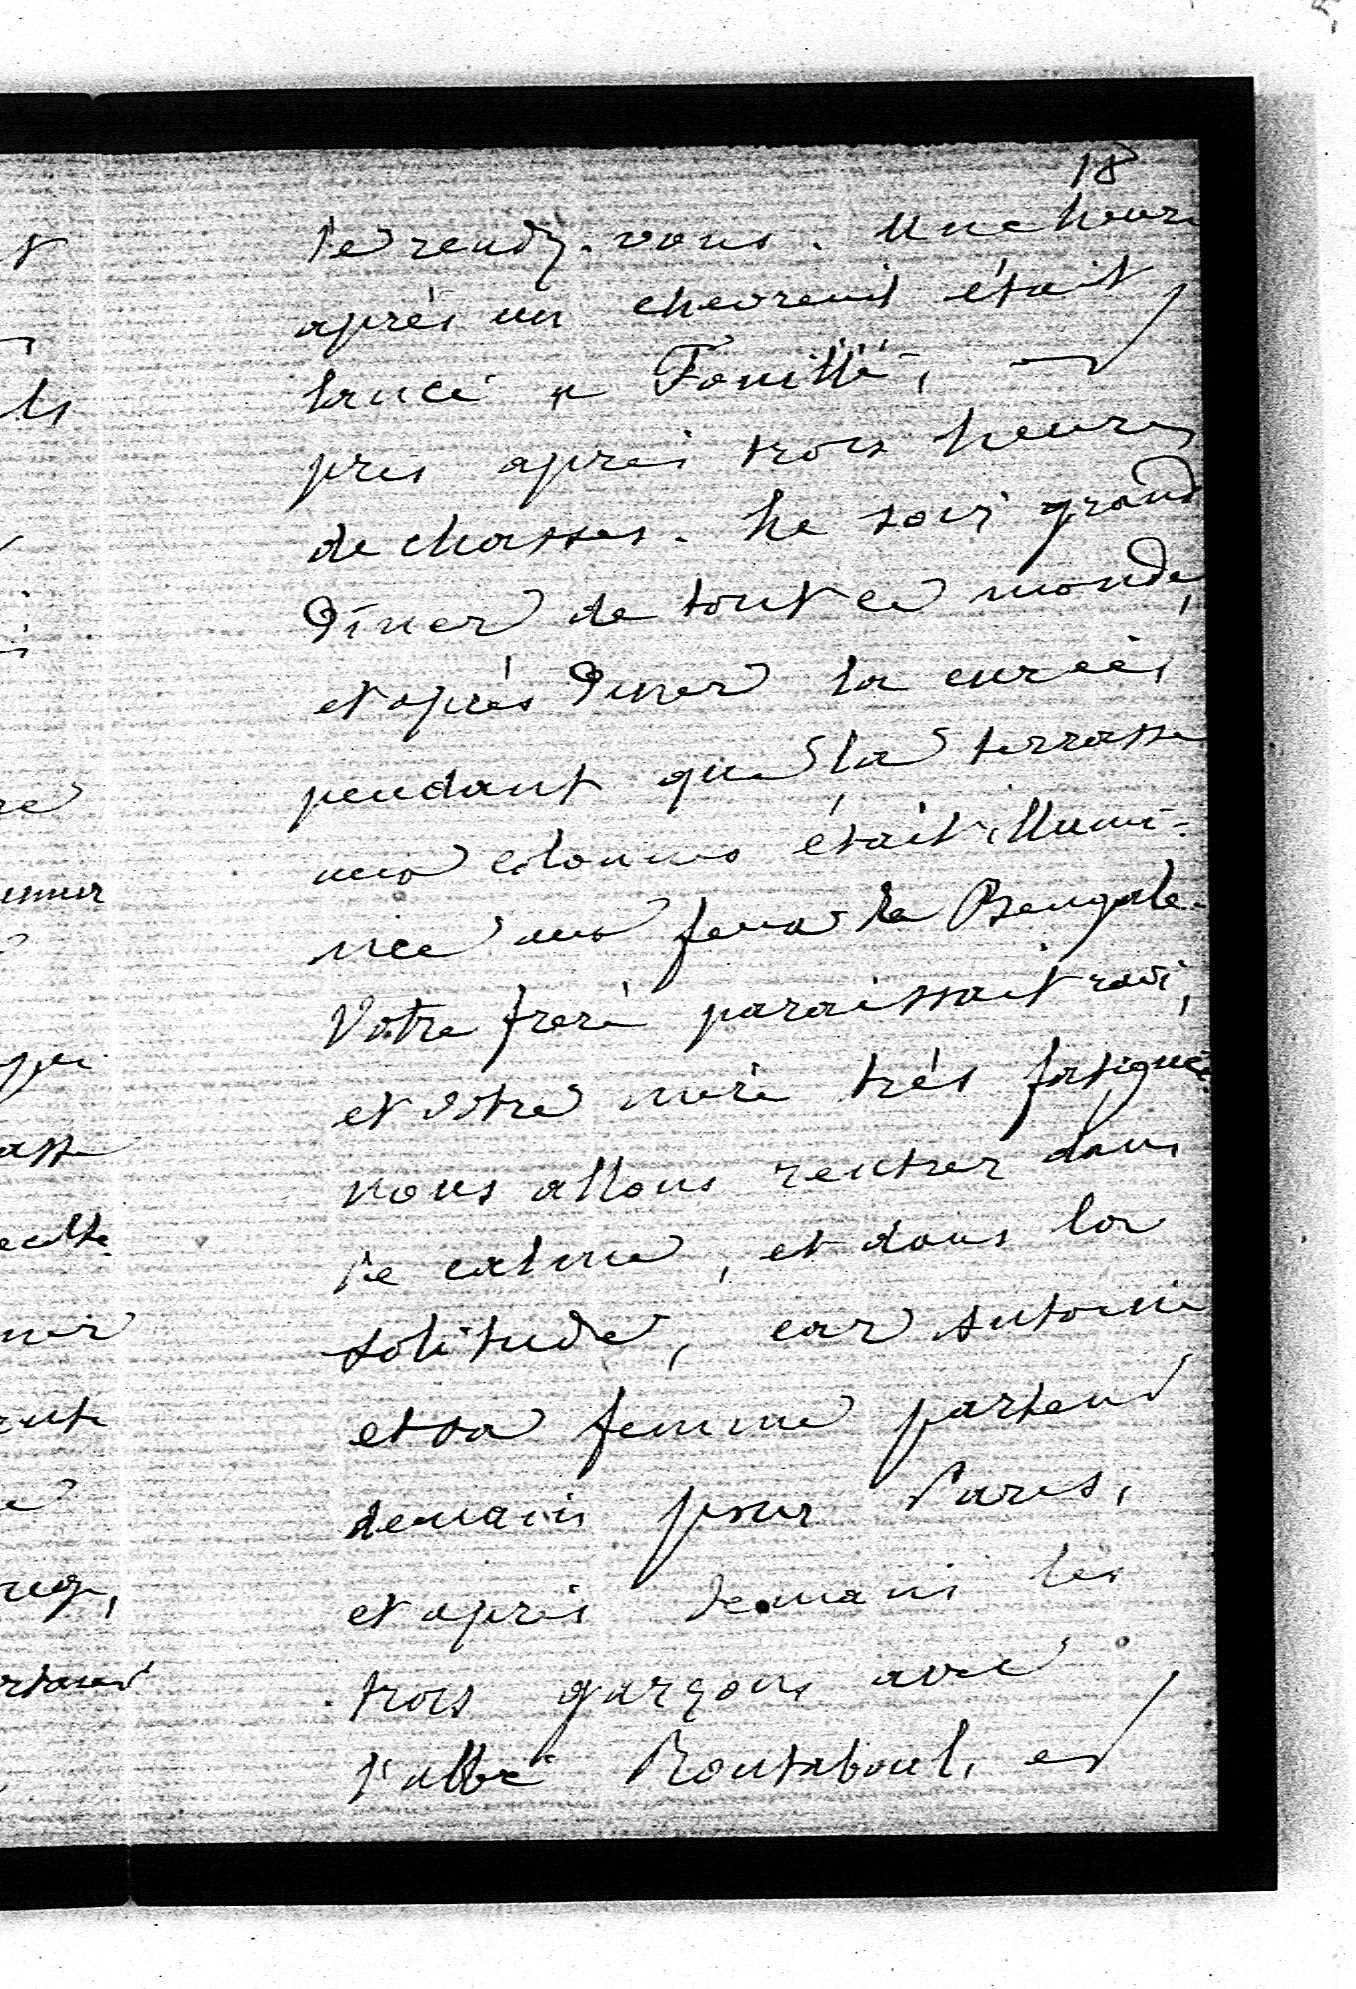 18
le rendez-vous. Une heure
après un chevreuil était
lancé a Fouillé, et
pris après trois heures
de chasses. Le soir grand
dîner de tout ce monde,
et après diner la curée,
pendant que la terrasse
aux colonnes était illumi-
née aux feux de Bengale.
Votre frère paraissait ravi,
et votre mère très fatiguée
nous allons rentrer dans
le calme, et dans la
solitude, car Antoine
et sa femme partent
demain pour Paris,
et après demain les
trois garçons avec
l'abbé Routaboul, et